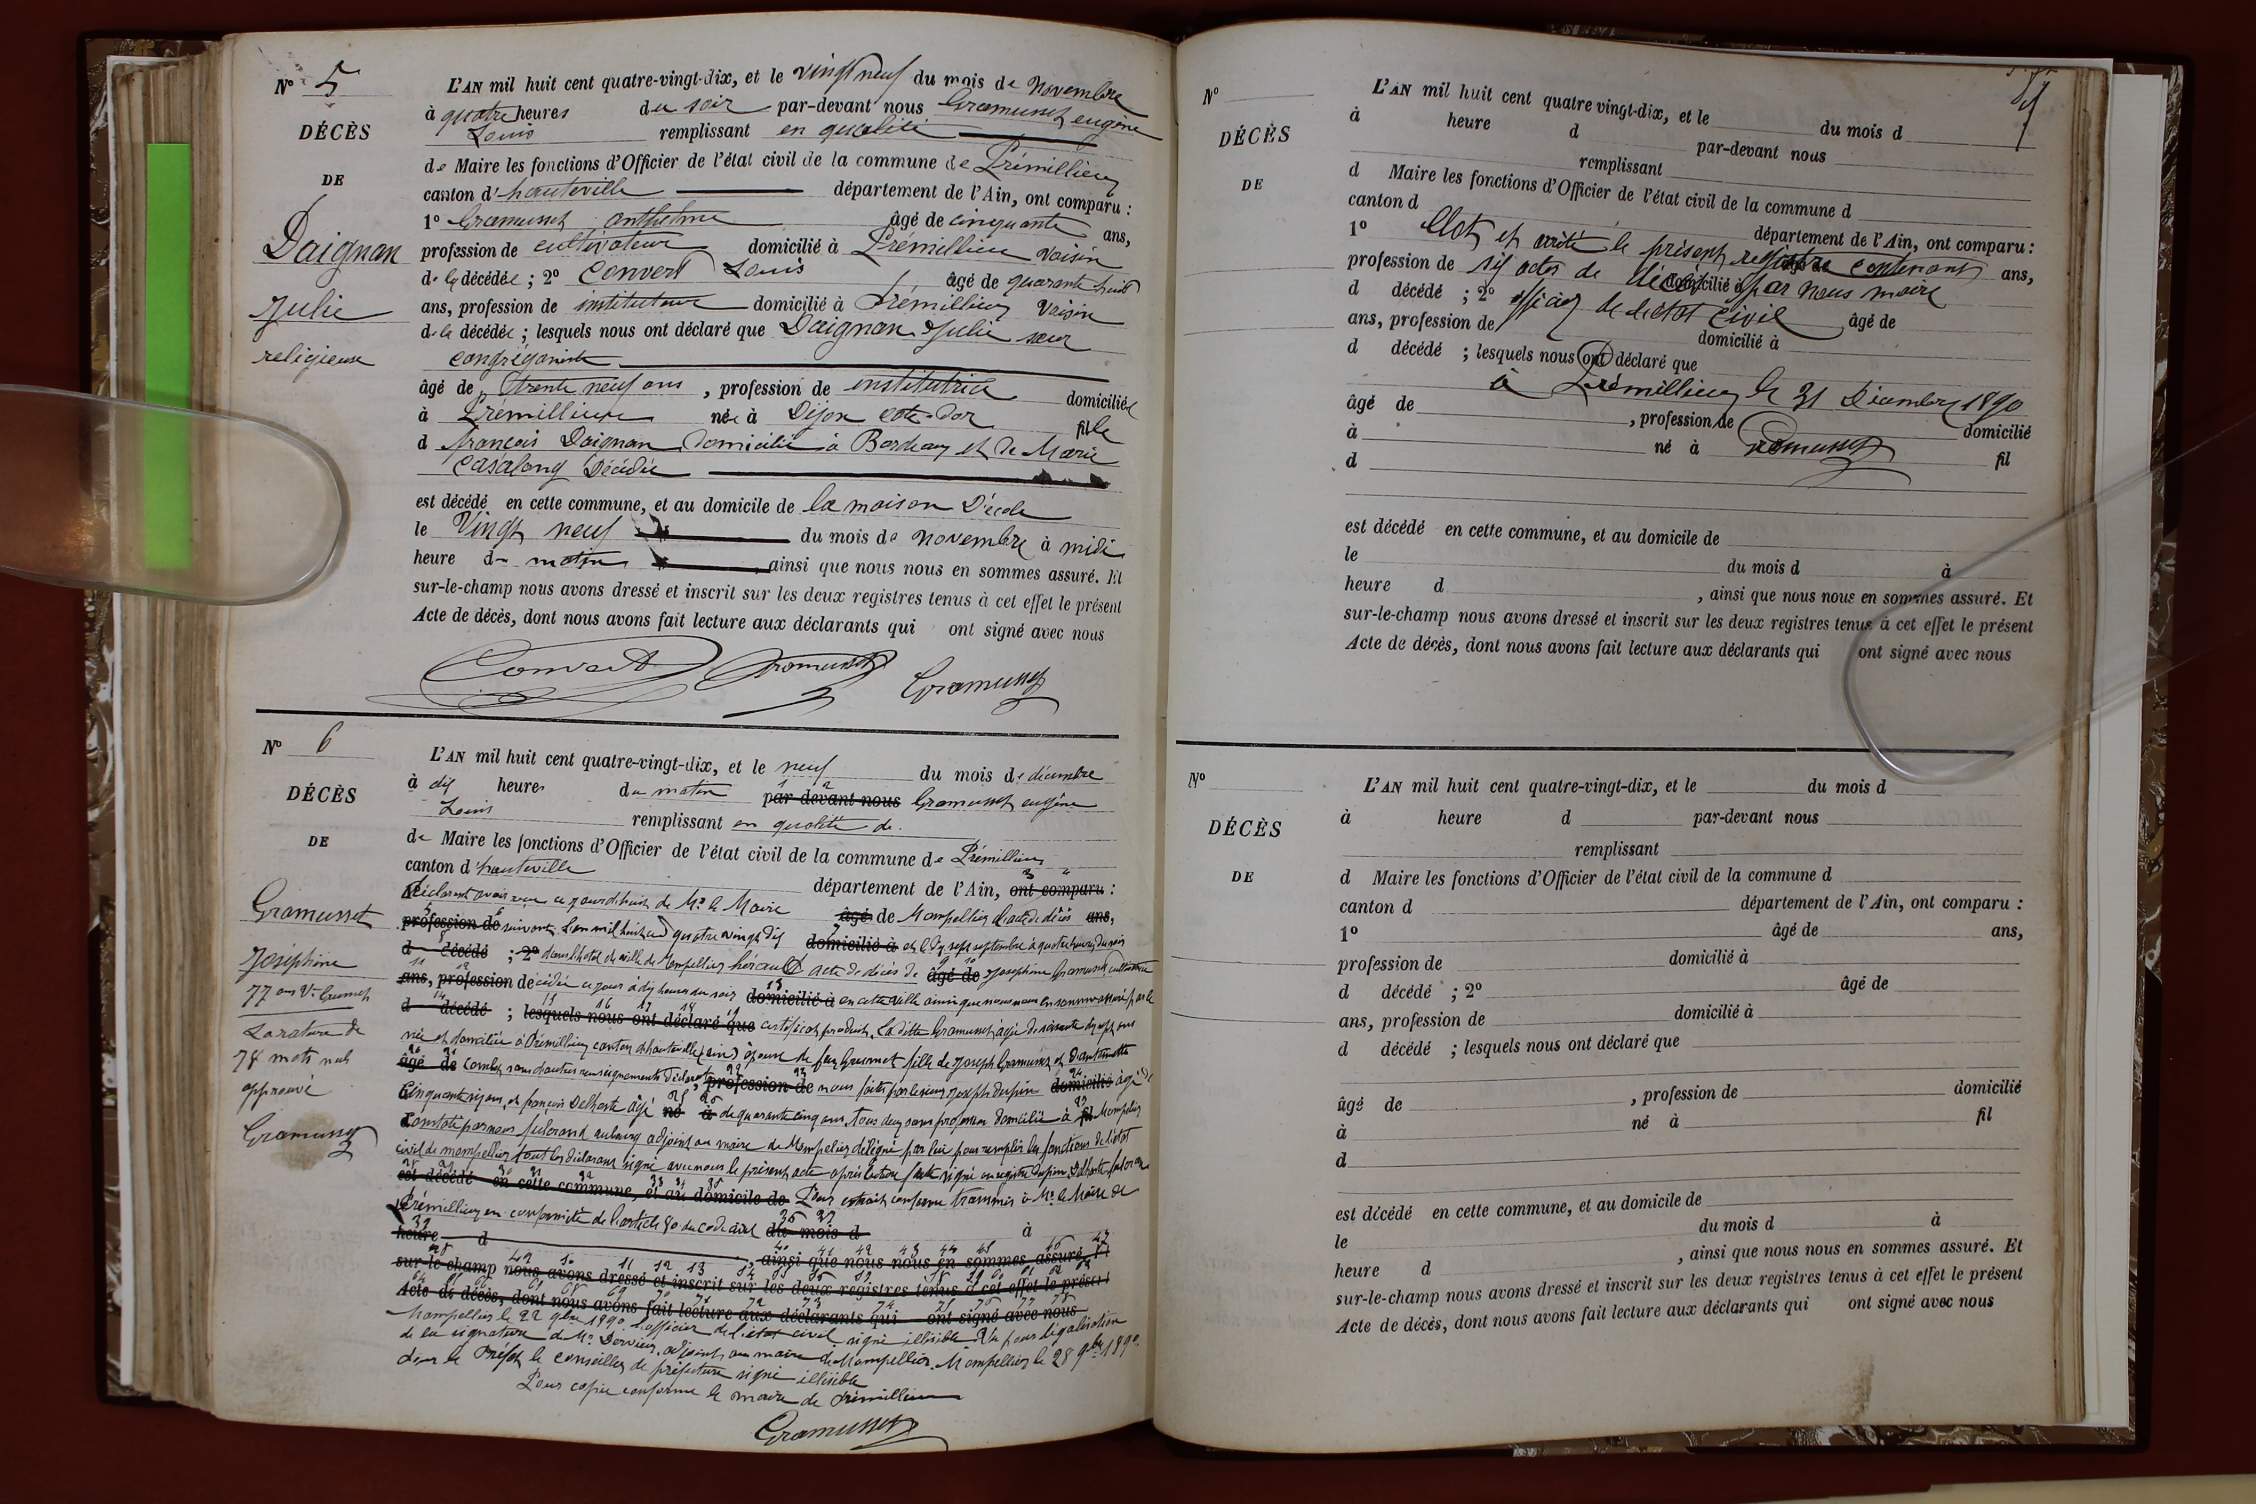 N° 5
DÉCÈS
DE
Daignan
Julie
religieuse
L'AN mil huit cent quatre-vingt-dix, et le vingt neuf du mois de Novembre
à quatre heures du soir par-devant nous Gramusset eugène
Louis remplissant en qualité
de Maire les fonctions d'Officier de l'état civil de la commune de Prémillieu
canton d'hauteville département de l'Ain, ont comparu :
1° Gramusset anthelme âgé de cinquante ans,
profession de cultivateur domicilié à Prémillieu voisin
de la décédée ; 2° Convert Louis âgé de quarante huit
ans, profession de instituteur domicilié à Prémillieu voisin
de la décédée ; lesquels nous ont déclaré que Daignan Julie sœur
congréganiste
âgé de trente neuf ans, profession de institutrice domiciliée
à Prémillieu née à Dijon cote-dor fille
d françois Daignan domicilié à Bordeaux et de Marie
Casalong Décédée
est décédé en cette commune, et au domicile de la maison D'école
le Vingt neuf du mois de novembre à midi
heure du matin ainsi que nous nous en sommes assuré. Et
sur-le-champ nous avons dressé et inscrit sur les deux registres tenus à cet effet le présent
Acte de décès, dont nous avons fait lecture aux déclarants qui ont signé avec nous
Convert Gramusset Gramusset
N° 6
DÉCÈS
DE
Gramusset
Joséphine
77 ans Ve Grumet
La rature de
78 mots nuls
approuvé
Gramusset
L'AN mil huit cent quatre-vingt-dix, et le neuf du mois de décembre
à dix heures du matin par-devant nous Gramusset eugène
Louis remplissant en qualité de
de Maire les fonctions d'Officier de l'état civil de la commune de Prémillieu
canton d'hauteville département de l'Ain, ont comparu :
Déclarent avoir reçu ce jourd'hui de Mr le Maire âgé de Montpellier l'acte de décès ans,
profession de suivant. L'an mil huit cent quatre vingt dix domicilié à et le dix sept septembre à quatre heures du soir
d décédé ; 2° dans l'hotel de ville de Montpellier hérault acte de décès de âgé de Joséphine Gramusset cultivatrice
ans, profession de décédée ce jour à dix heures du soir domicilié à en cette ville ainsi que nous nous en sommes assuré par le
d décédé ; lesquels nous ont déclaré que certificat produit. La ditte Gramusset agée de soixante dix sept ans
née et domiciliée à Prémillieu canton d'hauteville (ain) épouse de feu Grumet fille de Joseph Gramusset et d'antoinette
âgé de Combet sans d'autres renseignements Déclarat profession de nous faites par les sieurs Joseph Dupin domicilié âgé de
Cinquante six ans, et françois Delhoste âgé né à de quarante cinq ans, tous deux sans profession domiciliés à fil Montpellier
Constaté par nous fulcrand aubourg adjoint au maire de Montpellier délégué par lui pour remplir les fonctions de l'état
civil de montpellier tout les déclarans signé avec nous le présent acte après lecture faite signé au registre Dupin Delhoste
est décédé en cette commune, et au domicile de Pour extrait conforme transmis à Mr le Maire de
Prémillieu en conformité de l'article 80 du code civil du mois d à
heure d ainsi que nous nous en sommes assuré. Et
sur-le-champ nous avons dressé et inscrit sur les deux registres tenus à cet effet le présent
Acte de décès, dont nous avons fait lecture aux déclarants qui ont signé avec nous
Montpellier le 22 9bre 1890 L'officier de l'état civil signé illisible Vu pour légalisation
de la signature de Mr adjoint au maire de Montpellier. Montpellier le 28 9bre 1890
Pour le Préfet le conseiller de préfecture signé illisible
Pour copie conforme le maire de Prémillieu
Gramusset
N°
DÉCÈS
DE
L'AN mil huit cent quatre vingt-dix, et le du mois d
à heure d par-devant nous
remplissant
d Maire les fonctions d'Officier de l'état civil de la commune d
canton d département de l'Ain, ont comparu :
1° Clos et arrêté le présent registre contenant âgé de ans,
profession de six actes de décès domicilié à par nous maire
d décédé ; 2° officier de l'état civil âgé de
ans, profession de domicilié à
d décédé ; lesquels nous ont déclaré que
à Prémillieu le 31 Décembre 1890
âgé de , profession de domicilié
à né à Gramusset fil
d
est décédé en cette commune, et au domicile de
le du mois d à
heure d , ainsi que nous nous en sommes assuré. Et
sur-le-champ nous avons dressé et inscrit sur les deux registres tenus à cet effet le présent
Acte de décès, dont nous avons fait lecture aux déclarants qui ont signé avec nous
N°
DÉCÈS
DE
L'AN mil huit cent quatre-vingt-dix, et le du mois d
à heure d par-devant nous
remplissant
d Maire les fonctions d'Officier de l'état civil de la commune d
canton d département de l'Ain, ont comparu :
1° âgé de ans,
profession de domicilié à
d décédé ; 2° âgé de
ans, profession de domicilié à
d décédé ; lesquels nous ont déclaré que
âgé de , profession de domicilié
à né à fil
d
est décédé en cette commune, et au domicile de
le du mois d à
heure d , ainsi que nous nous en sommes assuré. Et
sur-le-champ nous avons dressé et inscrit sur les deux registres tenus à cet effet le présent
Acte de décès, dont nous avons fait lecture aux déclarants qui ont signé avec nous